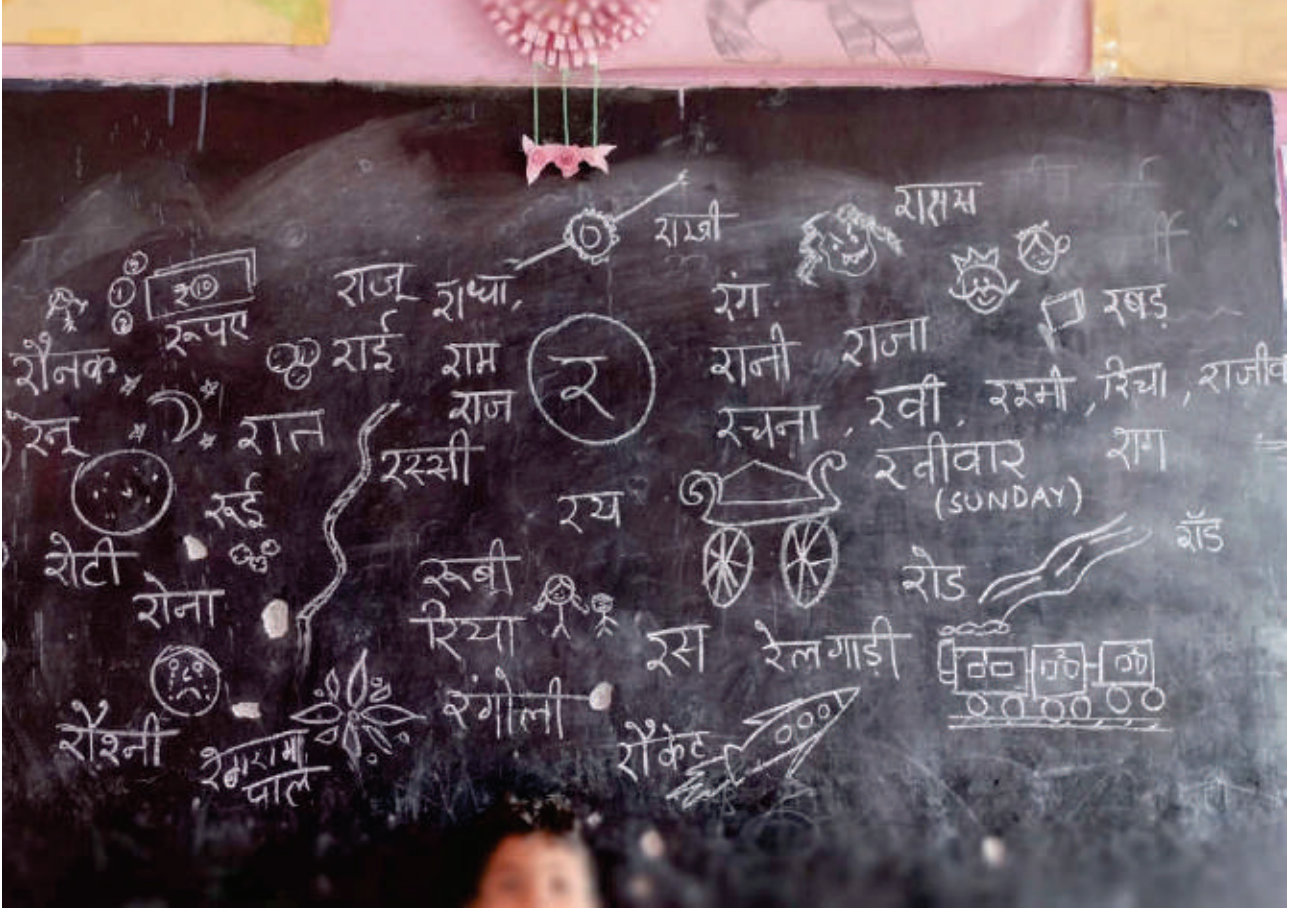 राखी
राक्षस
₹ 10
रूपए
राजू राधा,
रंग
रबड़
रौनक
राई
राम
र
रानी
राजा
रेनू
रात
राज
रचना, रवी, रश्मी, रिचा, राजीव
रस्सी
रवीवार
राग
(SUNDAY)
रूई
रथ
रोटी
रूबी
रोड
रॉड
रोना
रिया
रस
रेलगाड़ी
रंगोली
रौश्नी
रौकेट
पाल